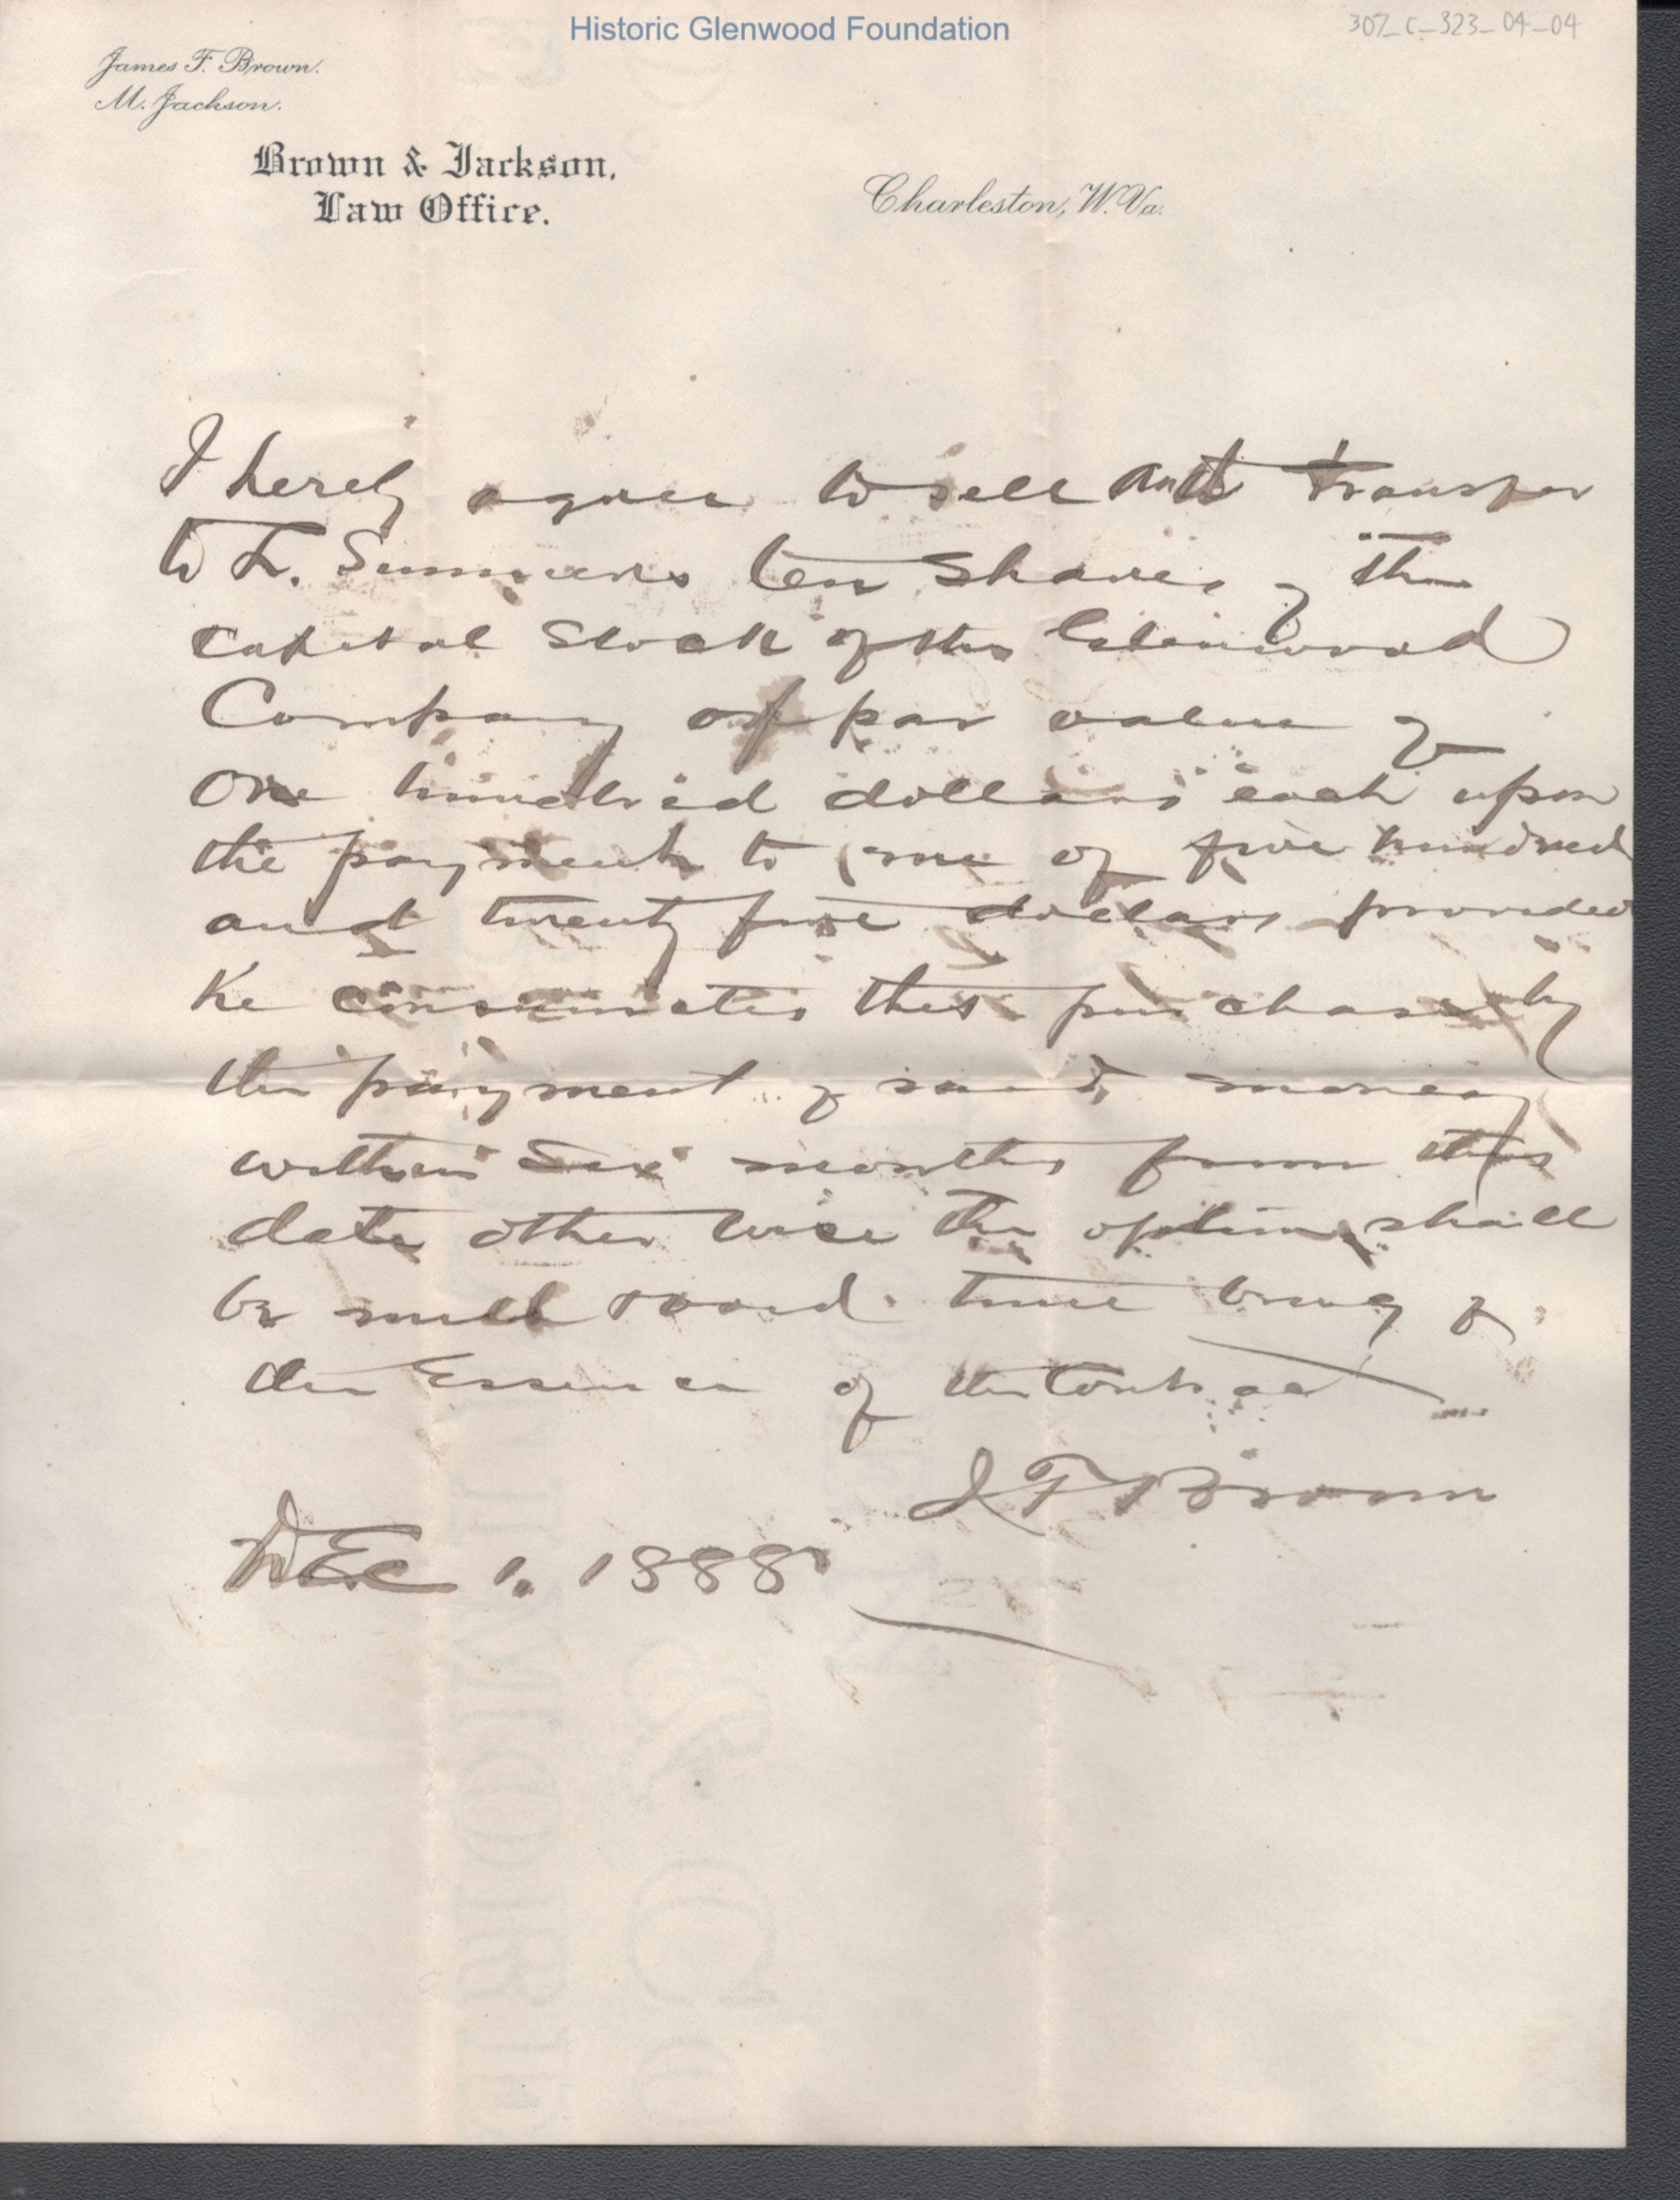 Historic Glenwood Foundation
307_C_323_04_04
James F. Brown.
M. Jackson.
Brown & Jackson,
Law Office.
Charleston, W. Va.
I hereby agree to sell and transfer
to L. Summers ten shares of the
capital stock of the Glenwood
Company of par value of
one hundred dollars each upon
the payment to me of five hundred
and twenty five dollars provided
he consumates this purchase by
the payment of said money
within six months from this
date other wise the option shall
be null & void. time being of
the Essence of the contract
J F Brown
DEc 1. 1888